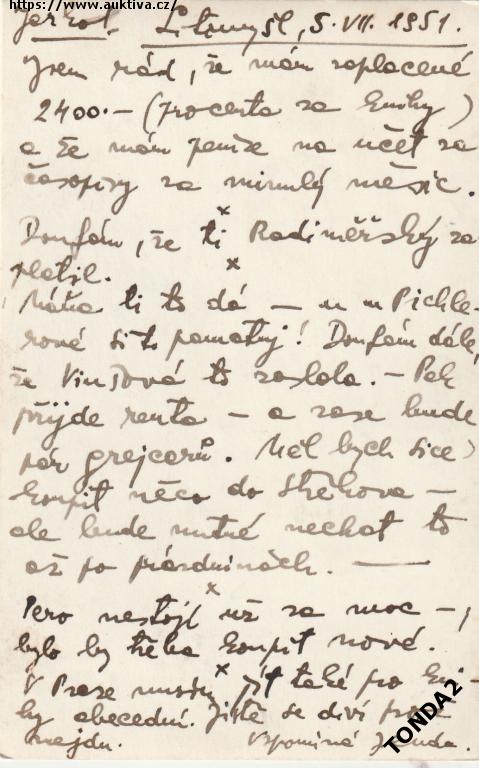 https://www.auktiva.cz/
Litomyšl, 5. VII. 1951.
Jsem rád, že mám zaplacené
2400.— (procenta za knihy)
a že mám peníze na účet za
časopisy za minulý měsíc.
x
Doufám, že ti Radiměřský za
platil.
x
Máňa ti to dá — u Pichle-
rové si to pamatuj! Doufám dále,
že to zaslala. — Pak
přijde renta — a zase bude
pár grejcarů. Měl bych sice
koupit něco do Střekova —
ale bude nutné nechat to
až po prázdninách. —
x
Pero nestojí už za moc —,
bylo by třeba koupit nové.
x
V Praze musím jít také pro kni-
hy abecední. Jistě se diví proč
nejdu. Vzpomíná
TONDA2